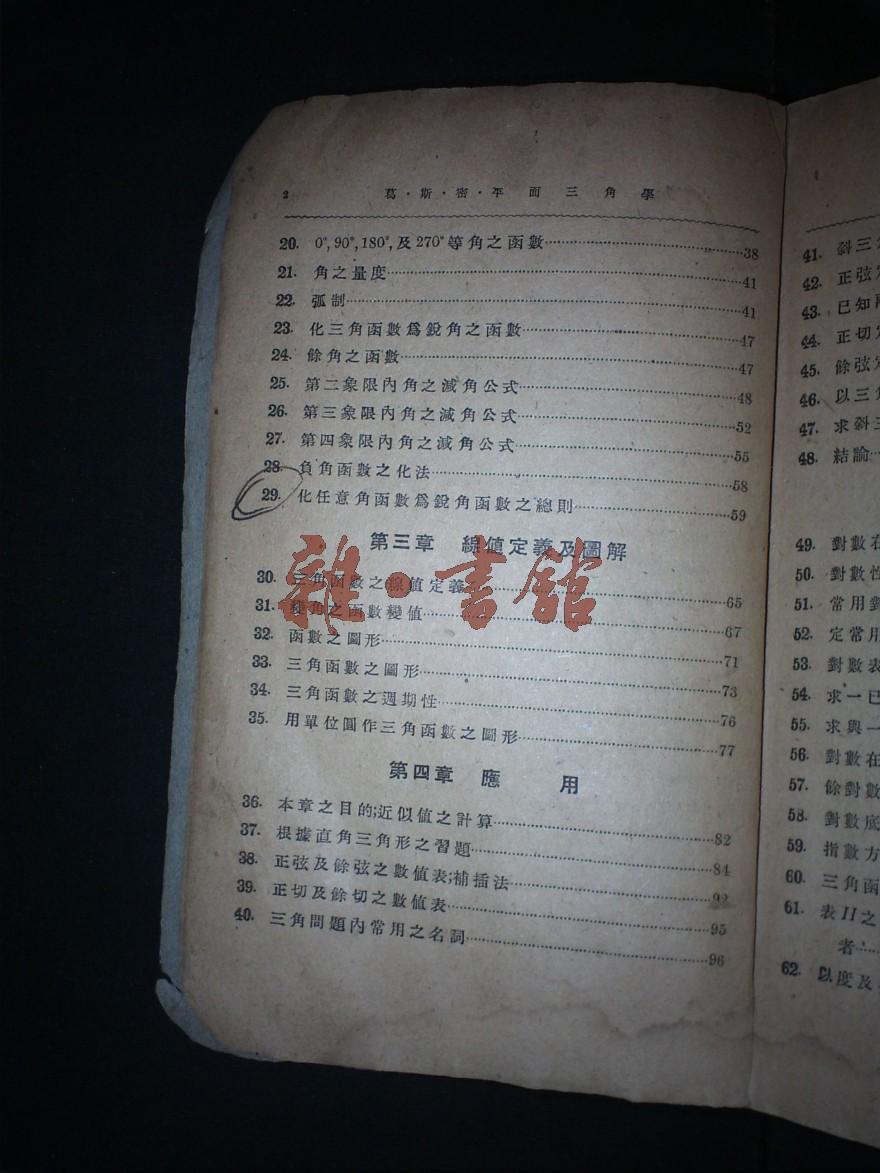 2 葛·斯·密·平面三角學
20. 0°, 90°, 180°, 及 270° 等角之函數……38
21. 角之量度……41
22. 弧制……41
23. 化三角函數爲銳角之函數……47
24. 餘角之函數……47
25. 第二象限內角之減角公式……48
26. 第三象限內角之減角公式……52
27. 第四象限內角之減角公式……55
28. 負角函數之化法……58
29. 化任意角函數爲銳角函數之總則……59
第三章 線値定義及圖解
30. 三角函數之線値定義……65
31. 變角之函數變値……67
32. 函數之圖形……71
33. 三角函數之圖形……73
34. 三角函數之週期性……76
35. 用單位圓作三角函數之圖形……77
第四章 應用
36. 本章之目的;近似値之計算……82
37. 根據直角三角形之習題……84
38. 正弦及餘弦之數値表;補插法……92
39. 正切及餘切之數値表……95
40. 三角問題內常用之名詞……96
雜·書館
41. 斜三
42. 正弦
43. 已知
44. 正切
45. 餘弦
46. 以三
47. 求斜
48. 結論
49. 對數在
50. 對數性
51. 常用對
52. 定常用
53. 對數表
54. 求一已
55. 求與一
56. 對數在
57. 餘對數
58. 對數底
59. 指數方
60. 三角函
61. 表II之
者
62. 以度及